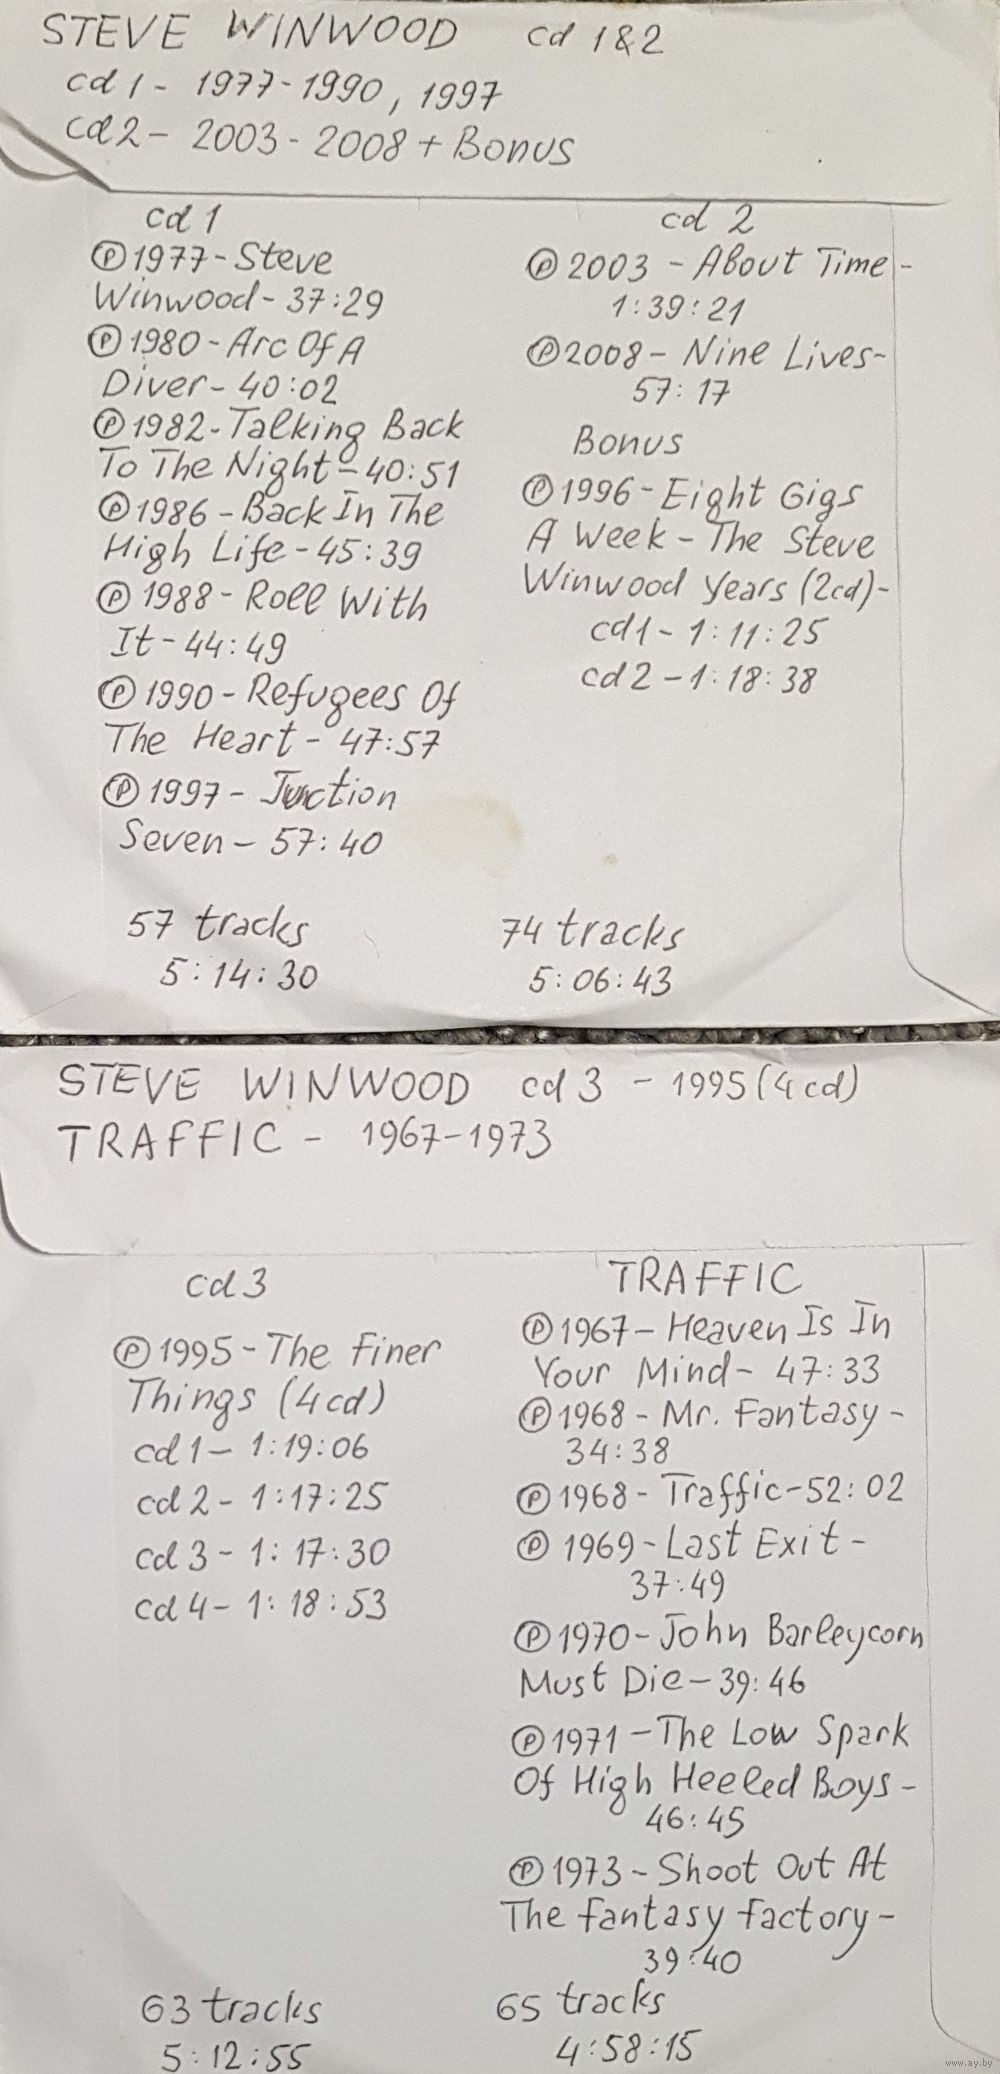 STEVE WINWOOD cd 1&2
cd 1 - 1977-1990, 1997
cd 2 - 2003 - 2008 + Bonus
cd 1
Ⓟ 1977 - Steve
Winwood - 37:29
Ⓟ 1980 - Arc Of A
Diver - 40:02
Ⓟ 1982 - Talking Back
To The Night - 40:51
Ⓟ 1986 - Back In The
High Life - 45:39
Ⓟ 1988 - Roll With
It - 44:49
Ⓟ 1990 - Refugees Of
The Heart - 47:57
Ⓟ 1997 - Junction
Seven - 57:40
57 tracks
5:14:30
cd 2
Ⓟ 2003 - About Time -
1:39:21
Ⓟ 2008 - Nine Lives -
57:17
Bonus
Ⓟ 1996 - Eight Gigs
A Week - The Steve
Winwood Years (2cd) -
cd 1 - 1:11:25
cd 2 - 1:18:38
74 tracks
5:06:43
STEVE WINWOOD cd 3 - 1995 (4 cd)
TRAFFIC - 1967-1973
cd 3
Ⓟ 1995 - The Finer
Things (4cd)
cd 1 - 1:19:06
cd 2 - 1:17:25
cd 3 - 1:17:30
cd 4 - 1:18:53
63 tracks
5:12:55
TRAFFIC
Ⓟ 1967 - Heaven Is In
Your Mind - 47:33
Ⓟ 1968 - Mr. Fantasy -
34:38
Ⓟ 1968 - Traffic - 52:02
Ⓟ 1969 - Last Exit -
37:49
Ⓟ 1970 - John Barleycorn
Must Die - 39:46
Ⓟ 1971 - The Low Spark
Of High Heeled Boys -
46:45
Ⓟ 1973 - Shoot Out At
The Fantasy Factory -
39:40
65 tracks
4:58:15
www.ay.by